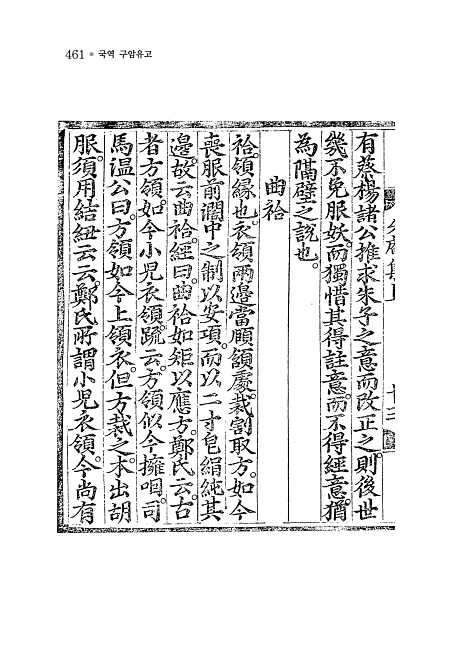 461 ● 국역 구암유고
有蔡楊諸公推求朱子之意而改正之則後世
幾不免服妖而獨惜其得註意而不得經意猶
為隔壁之說也
曲袷
袷領緣也衣領兩邊當頤頷處裁割取方如今
喪服前濶中之制以安項而以二寸皂絹純其
邊故云曲袷經曰曲袷如矩以應方鄭氏云古
者方領如今小兒衣領䟽云方領似今擁咽司
馬溫公曰方領如今上領衣但方裁之本出胡
服須用結紐云云鄭氏所謂小兒衣領今尚有